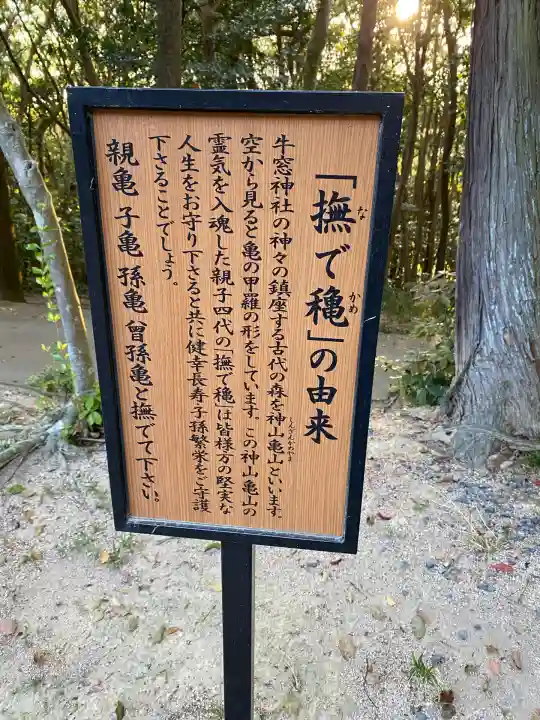 「撫で穐」の由来
な
かめ
牛窓神社の神々の鎮座する古代の森を神山亀山といいます。
空から見ると亀の甲羅の形をしています。この神山亀山の
霊気を入魂した親子四代の「撫で穐」は皆様方の堅実な
人生をお守り下さると共に健幸長寿・子孫繁栄をご守護
下さることでしょう。
親亀 子亀 孫亀 曾孫亀と撫でて下さい。